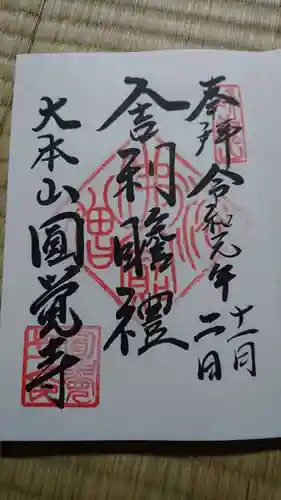 奉拝 令和元年 十一月二日
舎利瞻禮
大本山圓覚寺